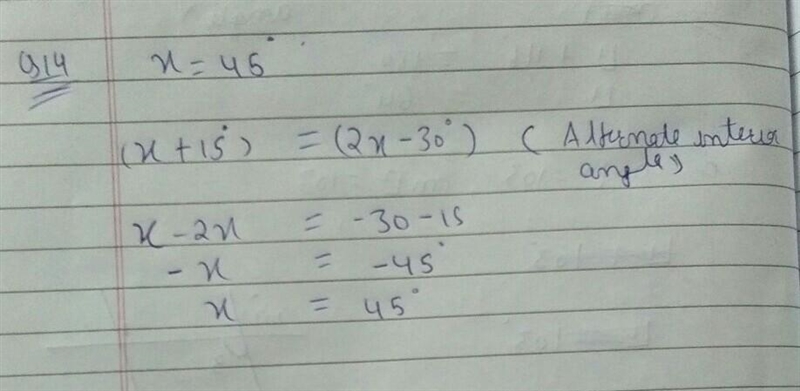 Q14 x = 45°
(x + 15°) = (2x - 30°) ( Alternate interior
angles)
x - 2x = -30 - 15
- x = -45°
x = 45°